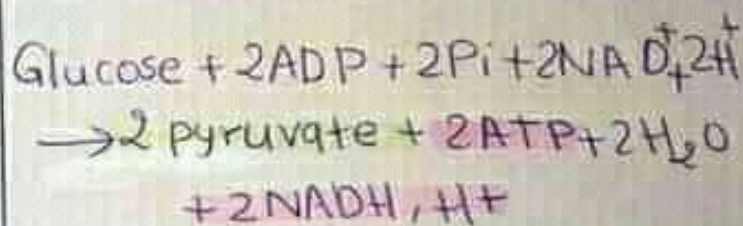 Glucose + 2ADP + 2Pi + 2NAD⁺ + 2H⁺
→ 2 pyruvate + 2ATP + 2H₂O
+ 2NADH, H+